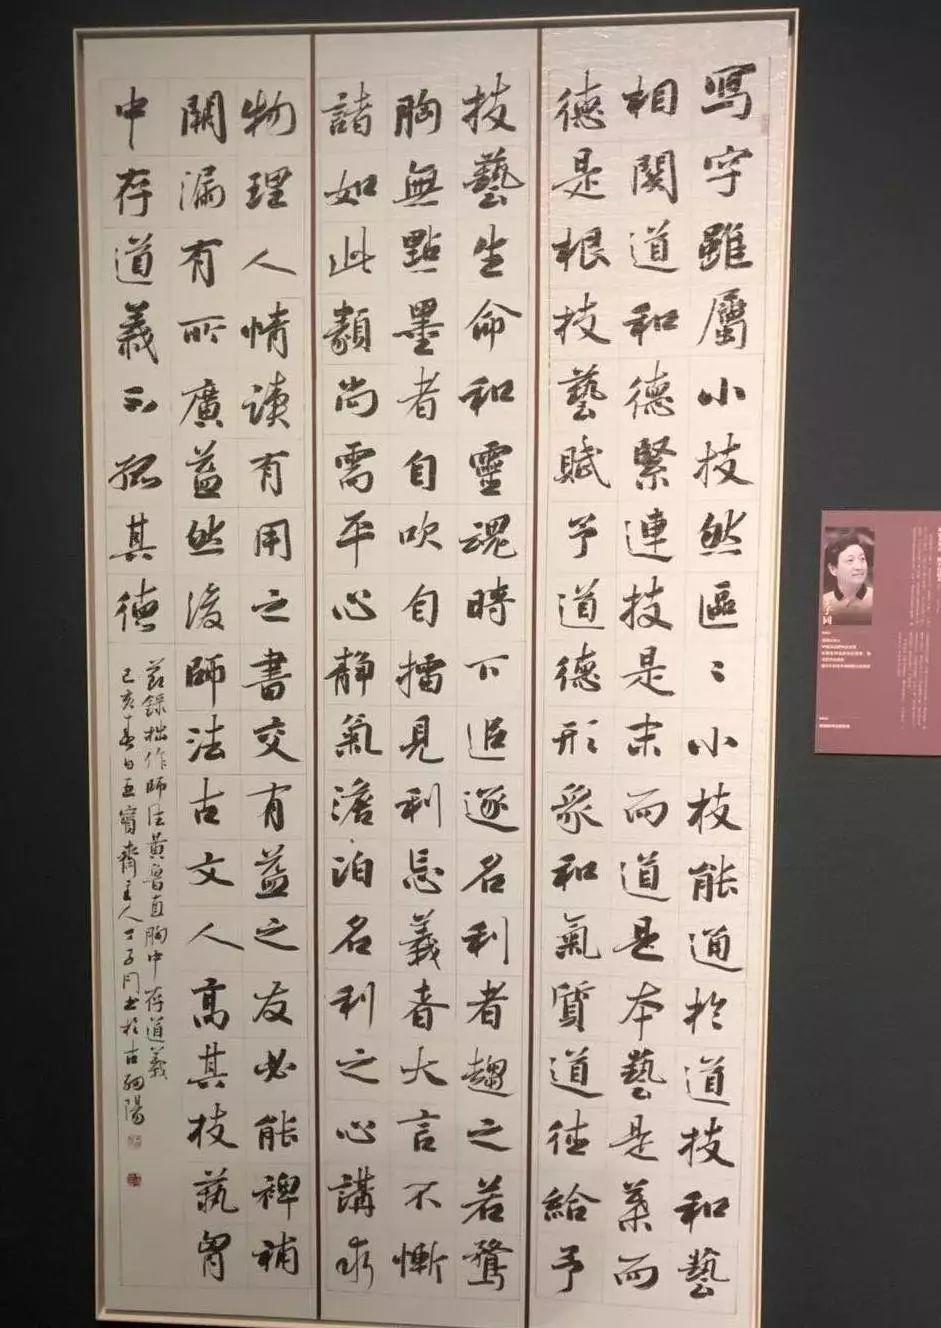 寫字雖屬小技然區〻小技能通於道技和藝
相關道和德緊連技是末而道是本藝是葉而
德是根技藝賦予道德形象和氣質道德給予
技藝生命和靈魂時下追逐名利者趨之若鶩
胸無點墨者自吹自擂見利忘義者大言不慚
諸如此類尚需平心靜氣澹泊名利之心講求
物理人情讀有用之書交有益之友必能裨補
闕漏有所廣益然後師法古文人高其技藝胷
中存道義不孤其德
節錄拙作師法黃魯直胸中存道義
己亥春日五寶齋主人丁子同書於古細陽